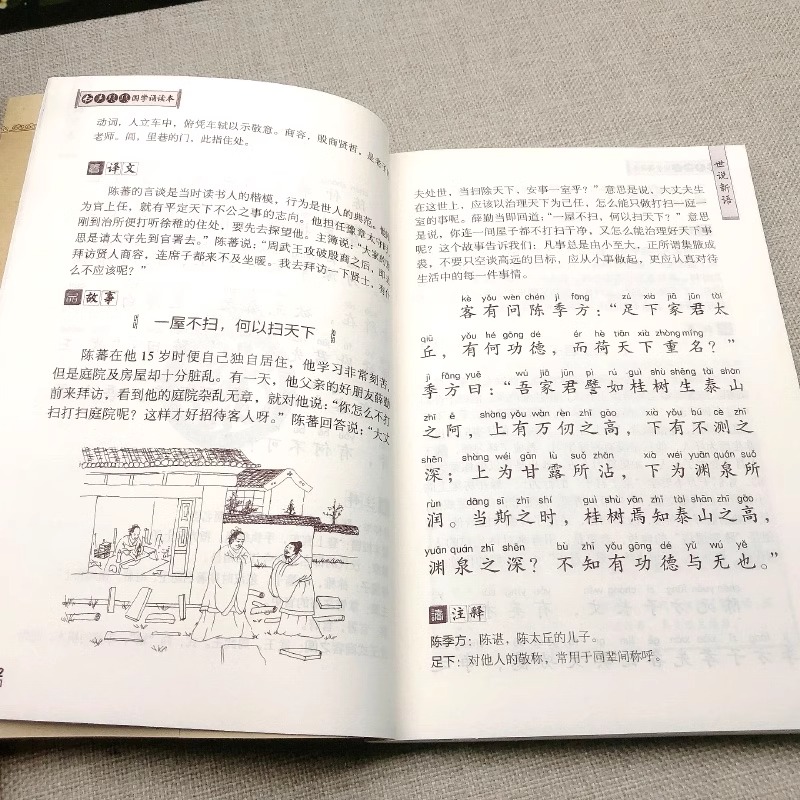 国学诵读本
动词，人立车中，俯凭车轼以示敬意。商容，殷商贤哲，是老子
老师。闾，里巷的门，此指住处。
译文
陈蕃的言谈是当时读书人的楷模，行为是世人的典范。他
为官上任，就有平定天下不公之事的志向。他担任豫章太守时
刚到治所便打听徐稚的住处，要先去探望他。主簿说：“大家的
思是请太守先到官署去。”陈蕃说：“周武王攻破殷商之后，即
拜访贤人商容，连席子都来不及坐暖。我去拜访一下贤士，有什
么不应该呢？”
故事
一屋不扫，何以扫天下
陈蕃在他 15 岁时便自己独自居住，他学习非常刻苦，
但是庭院及房屋却十分脏乱。有一天，他父亲的好朋友薛勤
前来拜访，看到他的庭院杂乱无章，就对他说：“你怎么不打
扫打扫庭院呢？这样才好招待客人呀。”陈蕃回答说：“大丈
世说新语
夫处世，当扫除天下，安事一室乎？”意思是说，大丈夫生
在这世上，应该以治理天下为己任，怎么能只做打扫一庭一
室的事呢。薛勤当即回道：“一屋不扫，何以扫天下？”意思
是说，你连一间屋子都不打扫干净，又怎么能治理好天下事
呢？这个故事告诉我们：凡事总是由小至大，正所谓集腋成
裘，不要只空谈高远的目标，应从小事做起，更应认真对待
生活中的每一件事情。
kè yǒu wèn chén jì fāng zú xià jiā jūn tài
客有问陈季方：“足下家君太
qiū yǒu hé gōng dé ér hè tiān xià zhòng míng
丘，有何功德，而荷天下重名？”
jì fāng yuē wú jiā jūn pì rú guì shù shēng tài shān
季方曰：“吾家君譬如桂树生泰山
zhī ē shàng yǒu wàn rèn zhī gāo xià yǒu bù cè zhī
之阿，上有万仞之高，下有不测之
shēn shàng wéi gān lù suǒ zhān xià wéi yuān quán suǒ
深；上为甘露所沾，下为渊泉所
rùn dāng sī zhī shí guì shù yān zhī tài shān zhī gāo
润。当斯之时，桂树焉知泰山之高，
yuān quán zhī shēn bù zhī yǒu gōng dé yǔ wú yě
渊泉之深？不知有功德与无也。”
注释
陈季方：陈谌，陈太丘的儿子。
足下：对他人的敬称，常用于同辈间称呼。